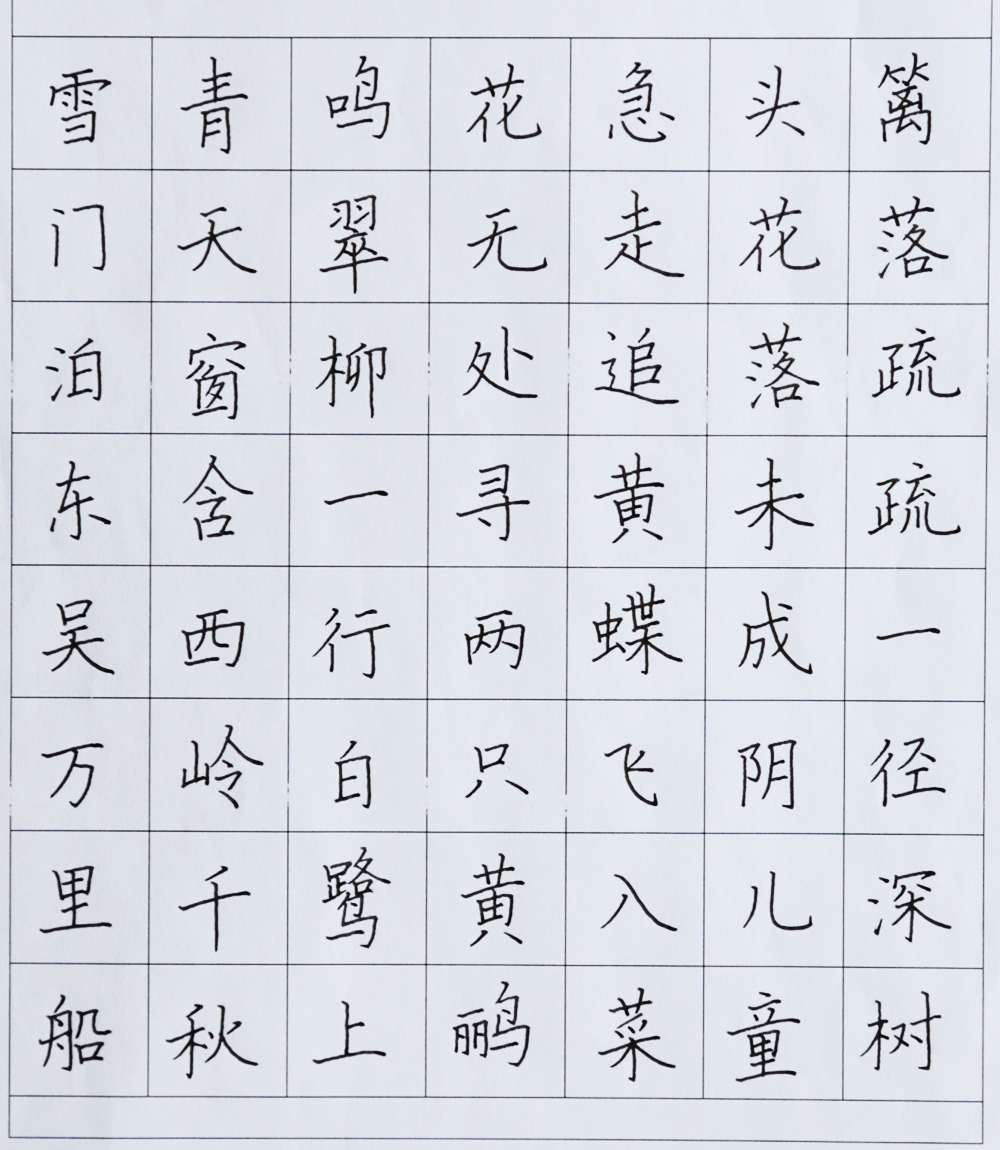 篱落疏疏一径深树
头花落未成阴儿童
急走追黄蝶飞入菜
花无处寻两只黄鹂
鸣翠柳一行白鹭上
青天窗含西岭千秋
雪门泊东吴万里船